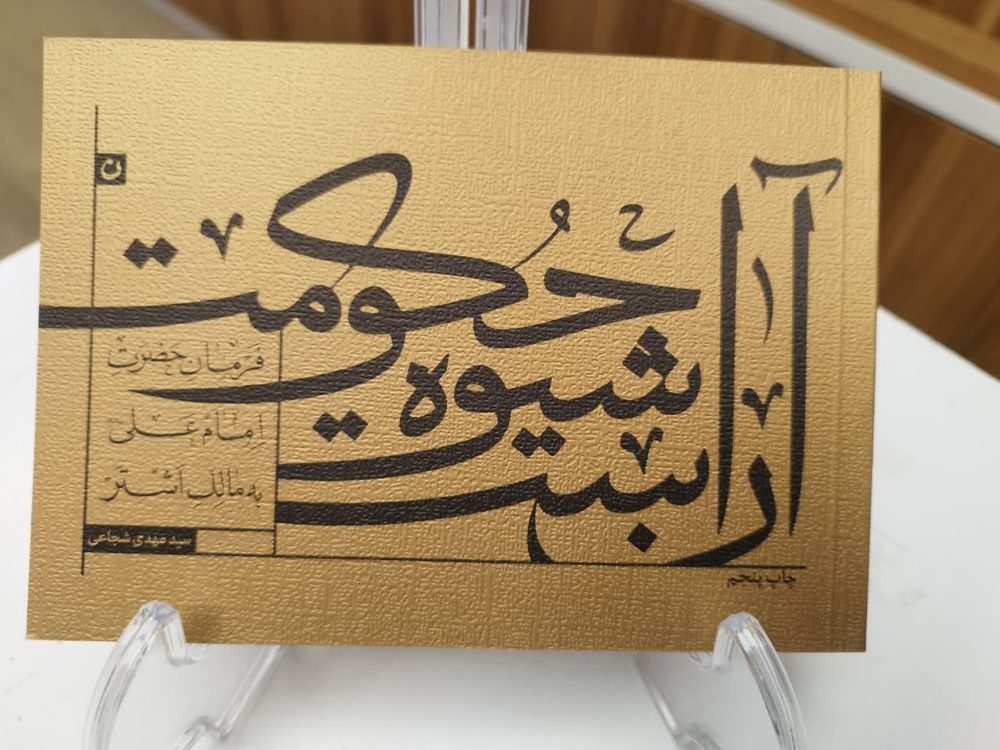 شیوه حکومت
فرمان حضرت
امام علی
به مالک اشتر
سید مهدی شجاعی
چاپ پنجم
ن